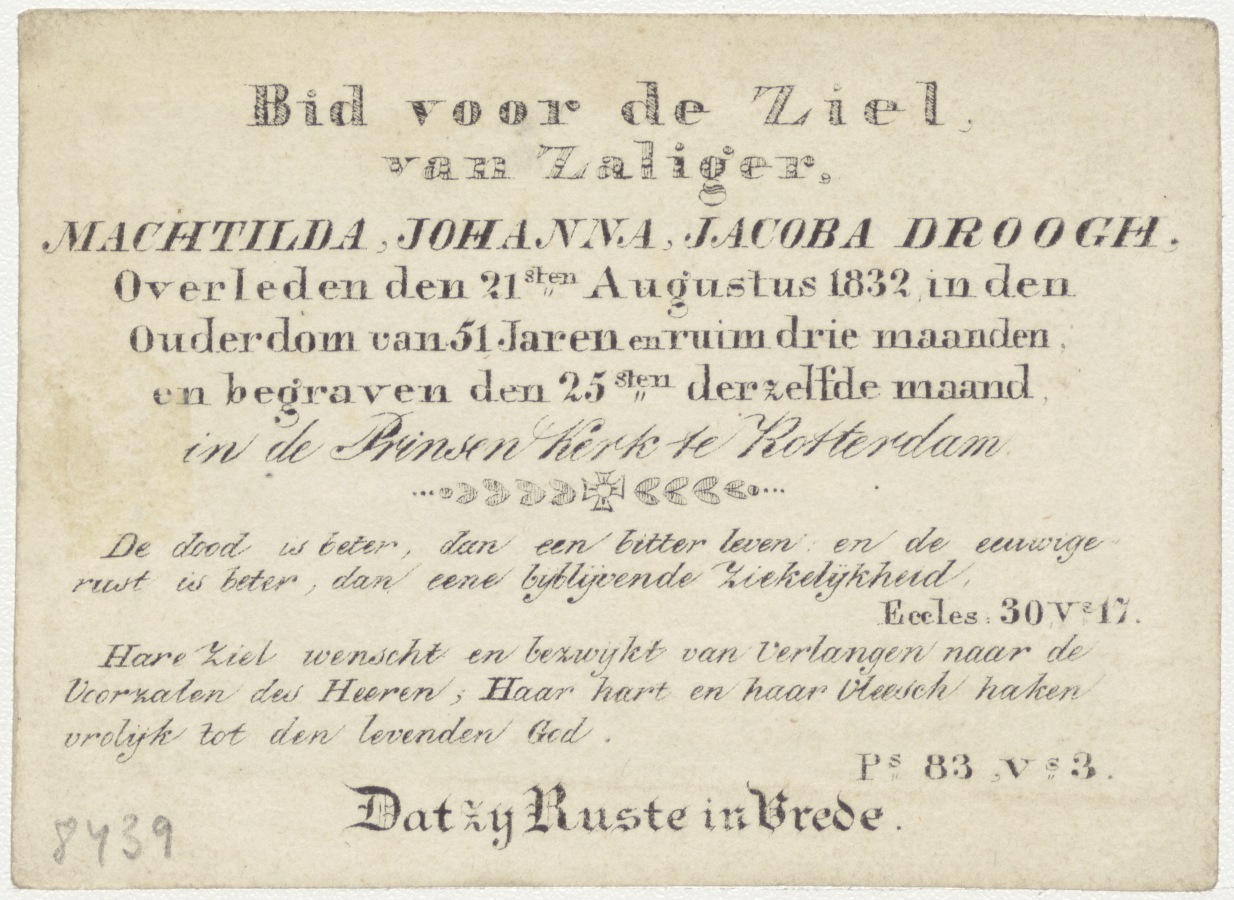 Bid voor de Ziel,
van Zaliger,
MACHTILDA, JOHANNA, JACOBA DROOGH,
Overleden den 21sten Augustus 1832, in den
Ouderdom van 51 Jaren en ruim drie maanden,
en begraven den 25sten derzelfde maand,
in de Prinsen Kerk te Rotterdam.
De dood is beter, dan een bitter leven: en de eeuwige
rust is beter, dan eene byblijvende Ziekelijkheid.
Eccles: 30 Vs 17.
Hare Ziel wenscht en bezwijkt van Verlangen naar de
Voorzalen des Heeren; Haar hart en haar Vleesch haken
vrolijk tot den levenden God.
Ps 83, Vs 3.
Dat zy Ruste in Vrede.
8439